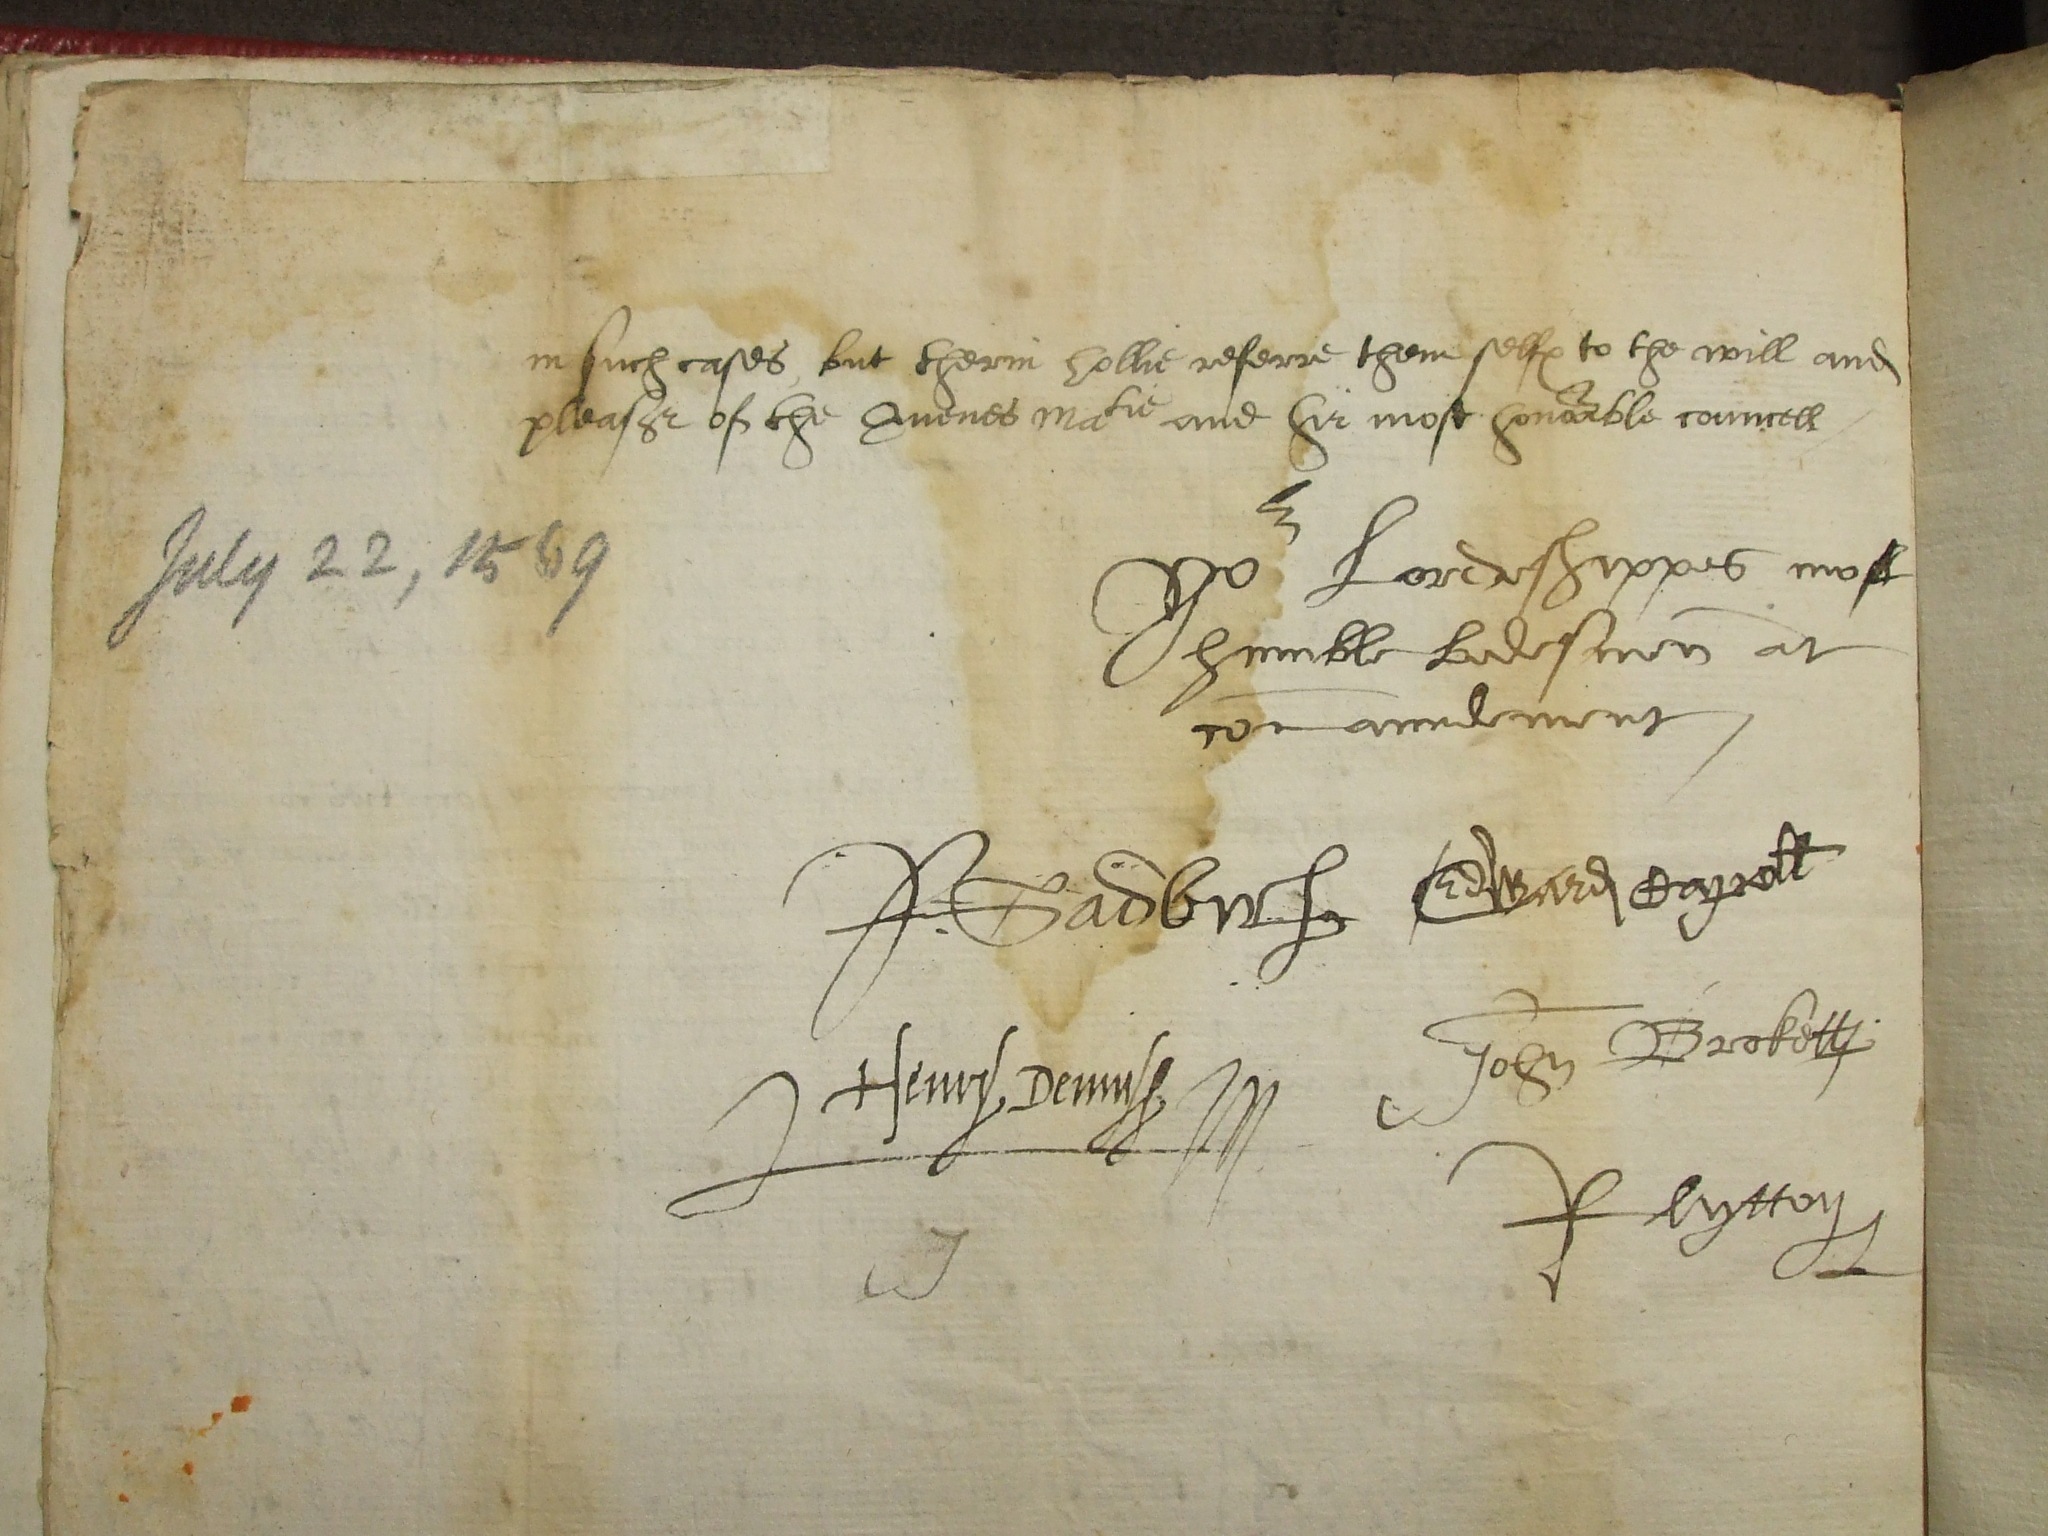 in such cases, but therin hollie referre them selfs to the will and
pleasur of the Quenes Matie and hir most honorable councell
July 22, 1569
Yor Lordeshippes most
humble bedesmen at
comaundement
Edward
Henry Dennys
John Brokett
Lytton